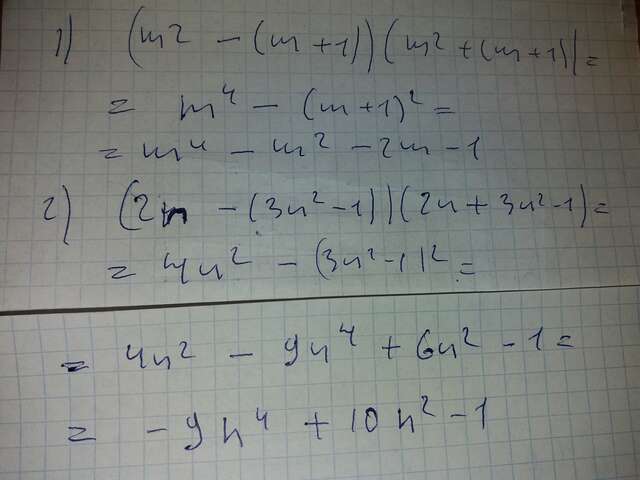 1) (m² - (m+1))(m² + (m+1)) =
= m⁴ - (m+1)² =
= m⁴ - m² - 2m - 1
2) (2n - (3n²-1))(2n + 3n²-1) =
= 4n² - (3n²-1)² =
= 4n² - 9n⁴ + 6n² - 1 =
= -9n⁴ + 10n² - 1